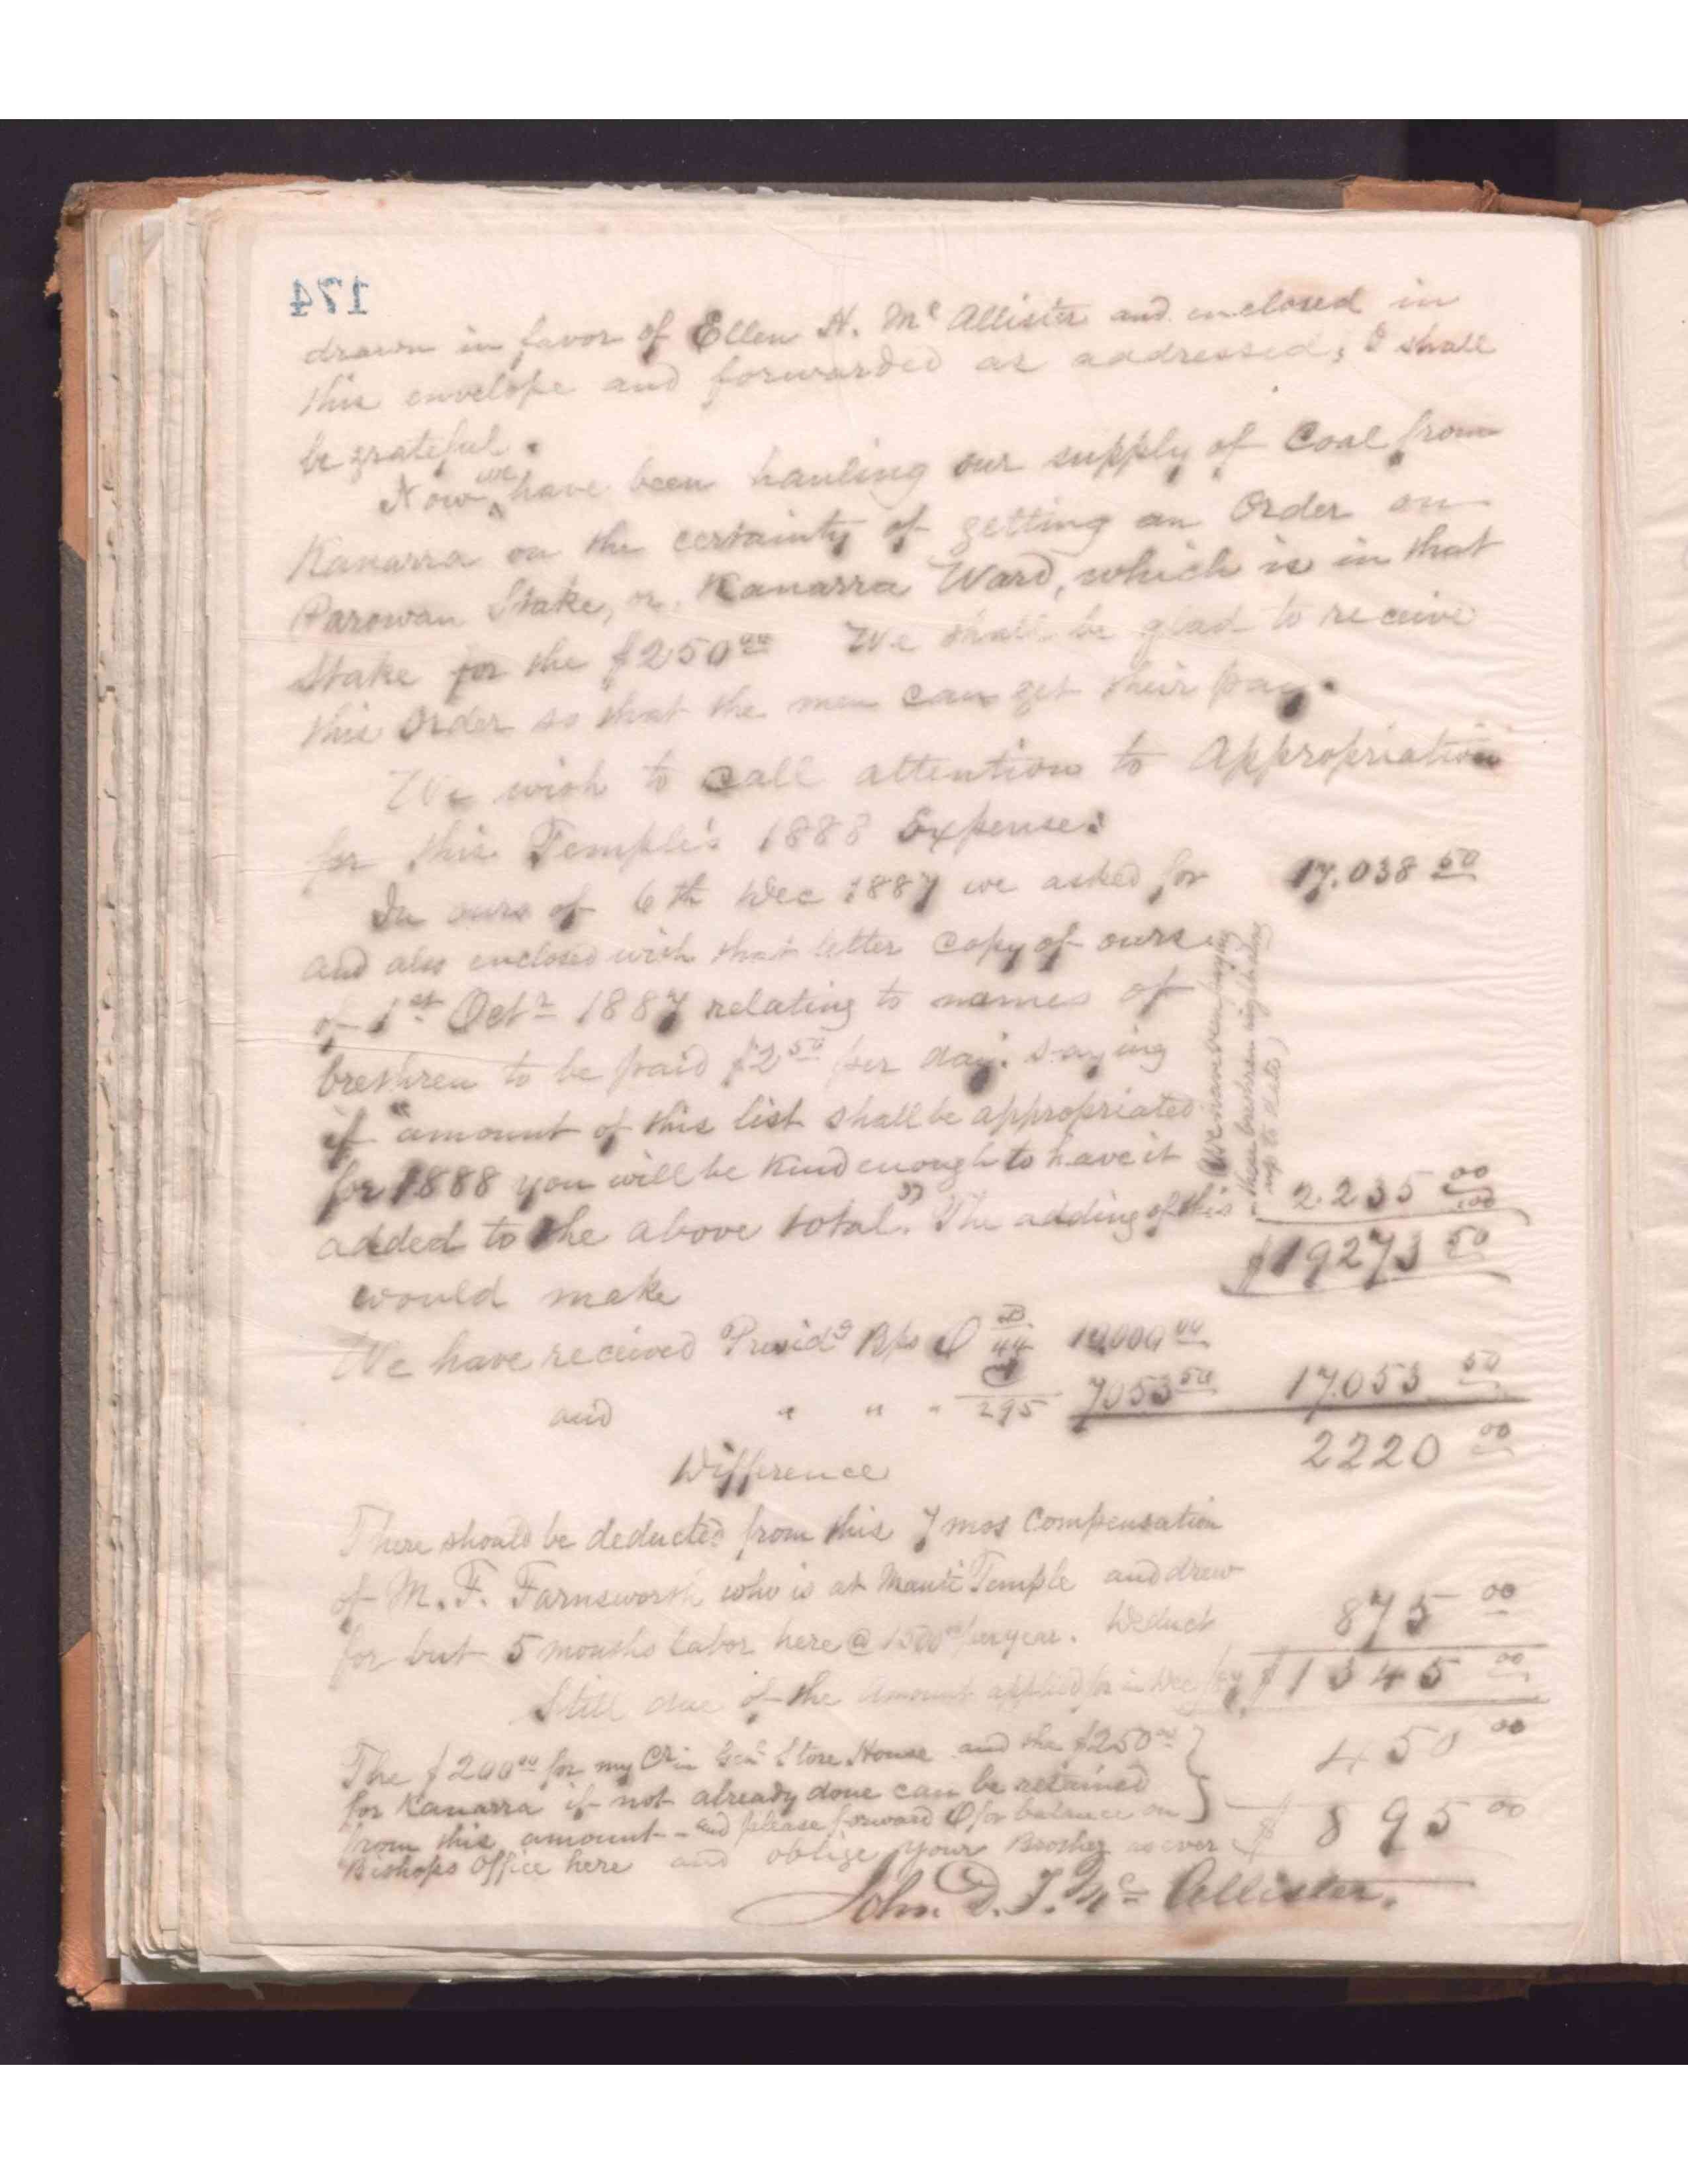 174
drawn in favor of Ellen H. Mc Allister and enclosed in
this envelope and forwarded as addressed, I shall
be grateful.
Now we have been hauling our supply of Coal from
Kanarra on the certainty of getting an Order on
Parowan Stake, or, Kanarra Ward, which is in that
Stake for the $250 00 We shall be glad to receive
this Order so that the men can get their pay.
We wish to call attention to Appropriation
for this Temple's 1888 Expense:
In ours of 6th Dec 1887 we asked for 17.038 50
and also enclosed with that letter copy of ours
of 1st Octr 1887 relating to names of
brethren to be paid $2 50 per day. saying
if "amount of this list shall be appropriated
for 1888 you will be kind enough to have it
added to the above total." The adding of this 2.235 00/100
(We have been paying
these brethren right along
up to date)
would make $19273 50
We have received Presid's Bps O B/44 10,000 00
and " " " C/295 7053 50 17.053 50
Difference 2220 00
There should be deducted from this 7 mos Compensation
of M. F. Farnsworth who is at Manti Temple and drew
for but 5 months labor here @ 1500 00 per year. Deduct 875 00
Still due of the Amount applied for in Dec /87 $1345 00
The $200 00 for my Cr in Genl Store House and the $250 00 } 450 00
for Kanarra if not already done can be retained
from this amount - and please forward O for balance on
Bishops Office here and oblige your Brother as ever $ 895 00
John D. T. Mc Allister.